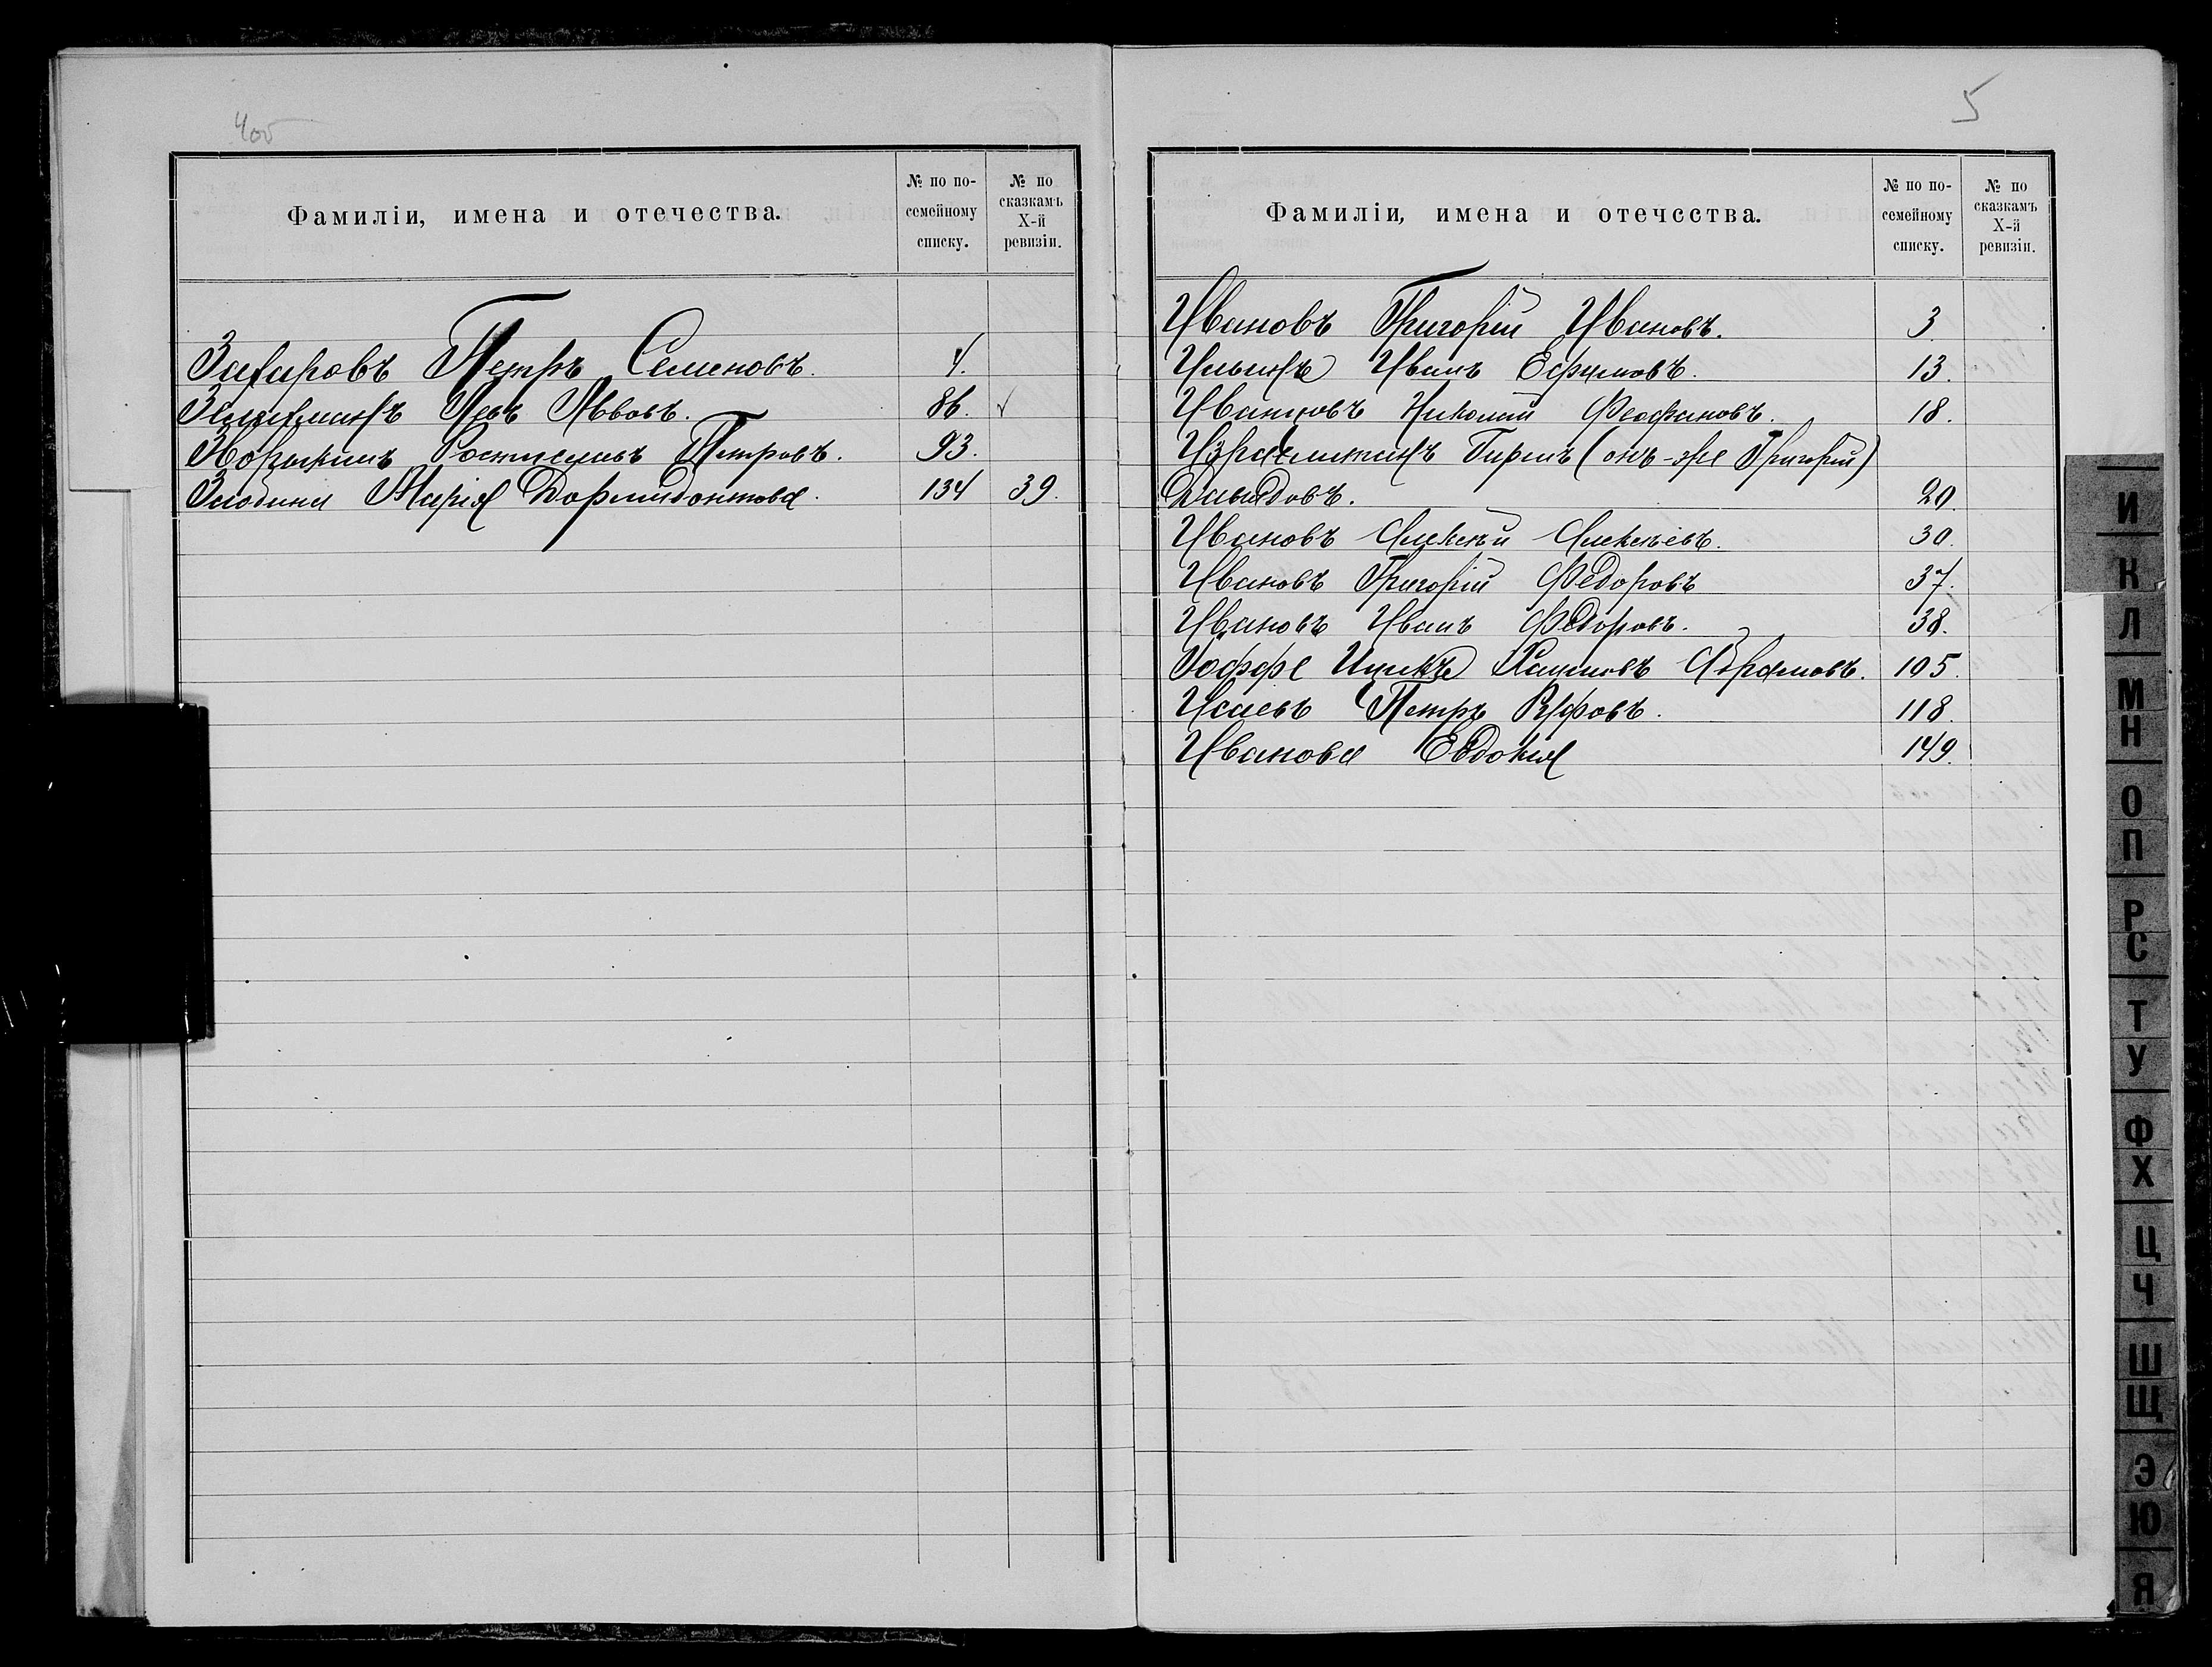 4об
Фамиліи, имена и отечества.
№ по по-семейному списку.
№ по сказкамъ X-й ревизіи.
Захаровъ Петръ Семеновъ. 4.
Левъ Львовъ. 86. ✓
Ростиславъ Петровъ. 93.
Злобина Марія Дормидонтова. 134 39.
5
Фамиліи, имена и отечества.
№ по по-семейному списку.
№ по сказкамъ X-й ревизіи.
Ивановъ Григорій Ивановъ. 3
Ильинъ Иванъ Ефимовъ. 13.
Иванновъ Николай Феофановъ. 18.
Израелитанъ Гиршъ (онъ-же Григорій)
Давыдовъ. 20.
Ивановъ Алексѣй Алексѣевъ. 30.
Ивановъ Григорій Федоровъ 37.
Ивановъ Иванъ Федоровъ. 38.
Іоффе Ицикъ Хаимовъ Абрамовъ. 105.
Исаевъ Петръ 118.
Иванова Евдокія 149.
И
К
Л
М
Н
О
П
Р
С
Т
У
Ф
Х
Ц
Ч
Ш
Щ
Э
Ю
Я